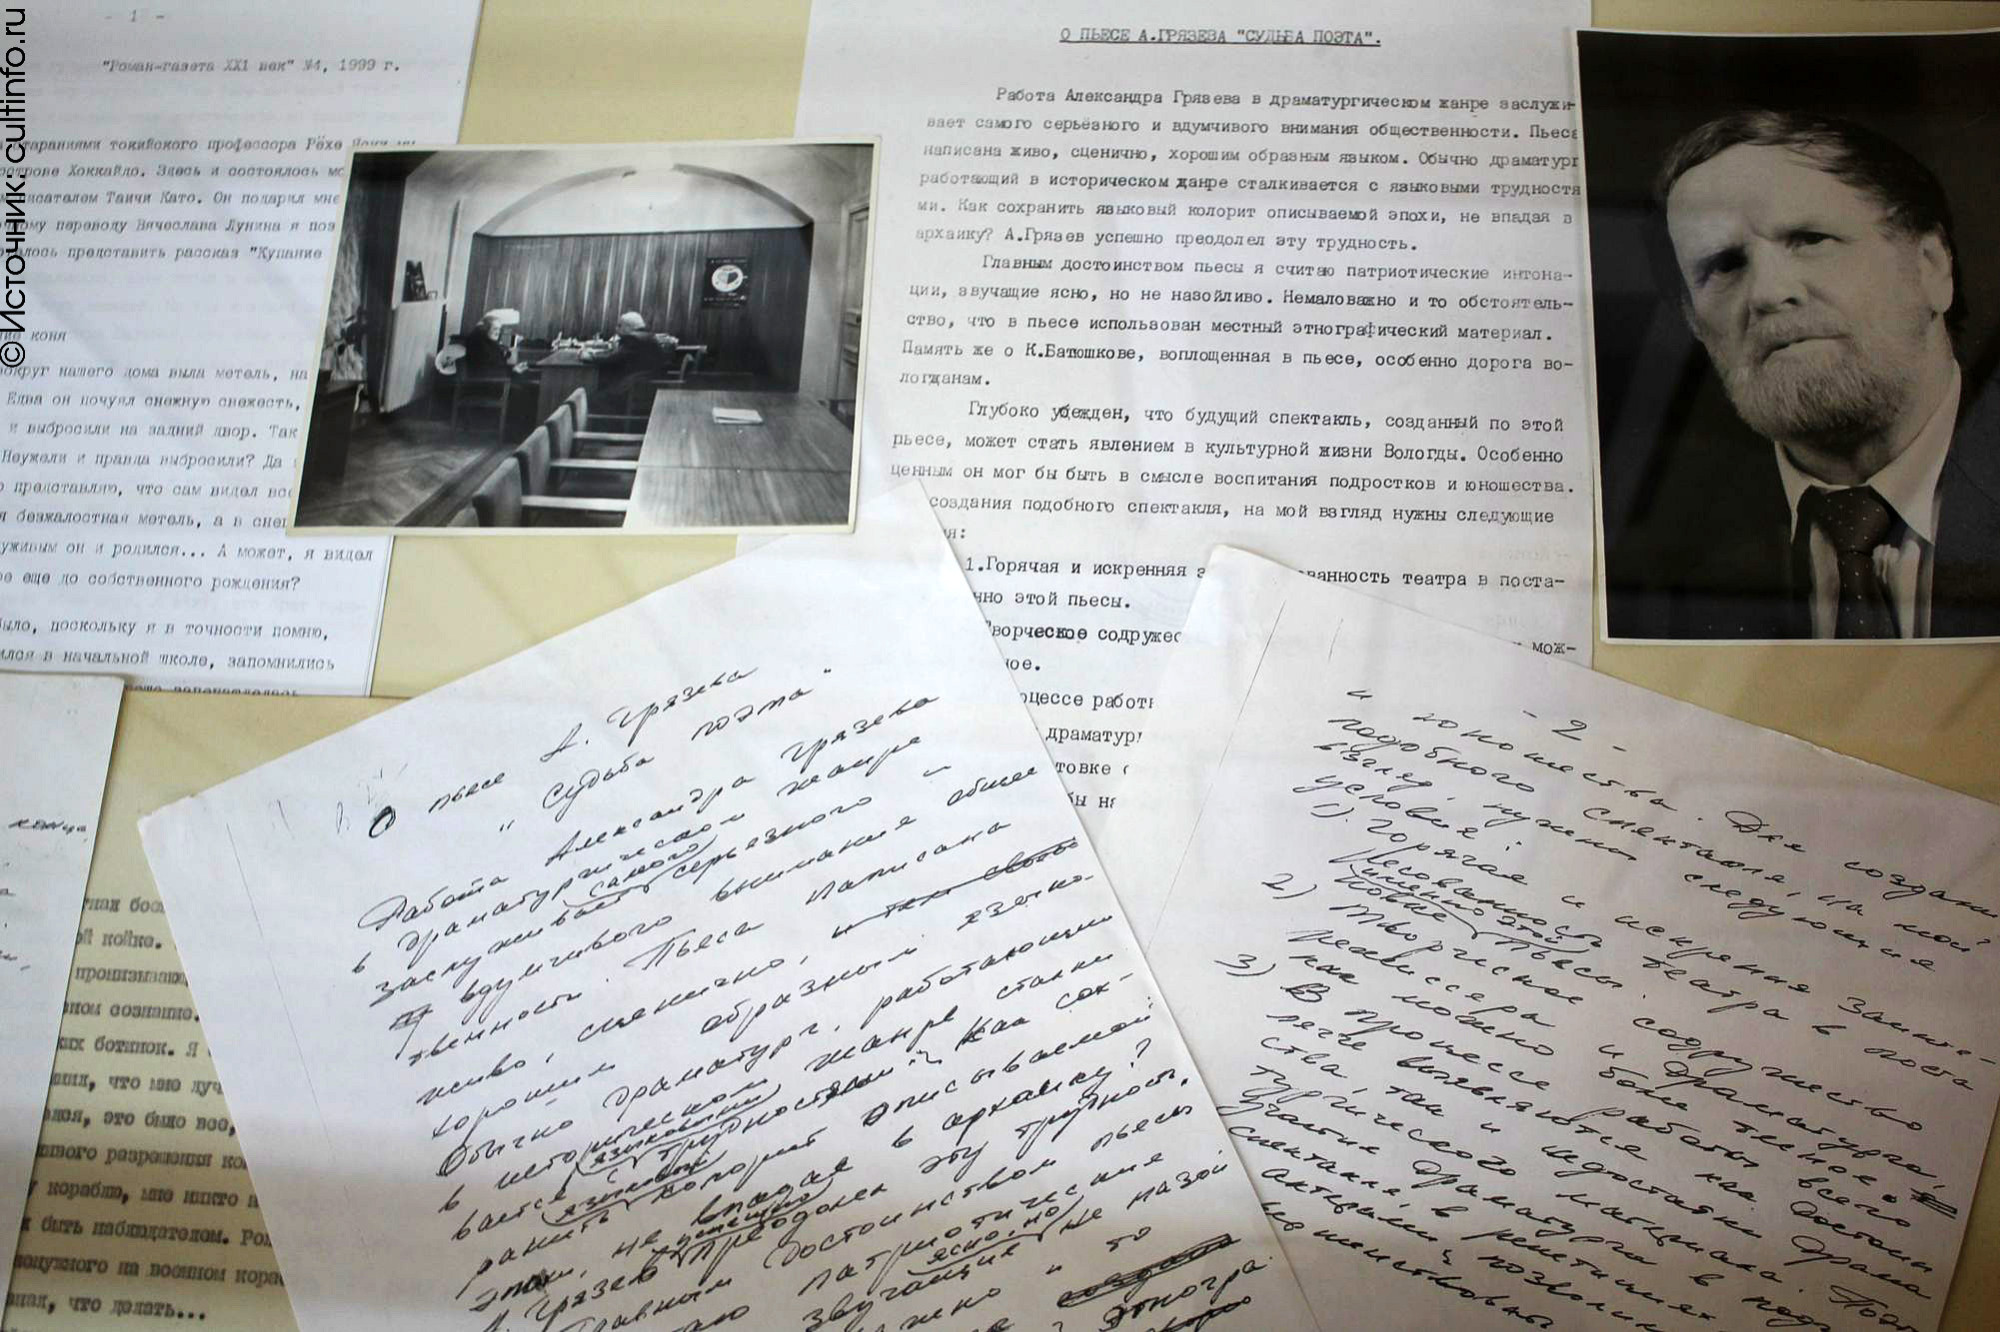 © Источник: cultinfo.ru
- 1 -
"Роман-газета XXI век" №4, 1999 г.
стараниями токийского профессора Рёхе
острове Хоккайдо. Здесь и состоялось
писателем Таичи Като. Он подарил мне
переводу Вячеслава Лунина я
представить рассказ "Купание
коня
вокруг нашего дома выла метель, на
Едва он почуял снежную свежесть,
и выбросили на задний двор. Так
Неужели и правда выбросили? Да
представляю, что сам видел
безжалостная метель, а в
он и родился... А может, я видел
еще до собственного рождения?
было, поскольку я в точности помню,
в начальной школе, запомнились
О ПЬЕСЕ А.ГРЯЗЕВА "СУДЬБА ПОЭТА".
Работа Александра Грязева в драматургическом жанре заслужи-
вает самого серьёзного и вдумчивого внимания общественности. Пьеса
написана живо, сценично, хорошим образным языком. Обычно драматург
работающий в историческом жанре сталкивается с языковыми трудностя
ми. Как сохранить языковый колорит описываемой эпохи, не впадая в
архаику? А.Грязев успешно преодолел эту трудность.
Главным достоинством пьесы я считаю патриотические интона-
ции, звучащие ясно, но не назойливо. Немаловажно и то обстоятель-
ство, что в пьесе использован местный этнографический материал.
Память же о К.Батюшкове, воплощенная в пьесе, особенно дорога во-
логжанам.
Глубоко убежден, что будущий спектакль, созданный по этой
пьесе, может стать явлением в культурной жизни Вологды. Особенно
ценным он мог бы быть в смысле воспитания подростков и юношества.
создания подобного спектакля, на мой взгляд нужны следующие
ия:
1.Горячая и искренняя з ванность театра в поста-
нно этой пьесы.
Творческое содружес
мож-
ное.
оцессе работы
драматур
товке
бы на
конца
ой койке.
пронизываю
ном сознание.
ых ботинок. Я
что мне луч
это было все,
разрешения
кораблю, мне никто
быть наблюдателем.
на военном
что делать...
О пьесе А. Грязева
"Судьба поэта"
Работа Александра Грязева
в драматургическом жанре
самого
заслуживает серьезного и
вдумчивого внимания общес
твенности. Пьеса написана
живо, сценично,
хорошим образным языко-
Обычно драматург, работающий
в историческом жанре сталки
языковыми
вается с трудностями. Как сох-
языковый
ранить колорит описываемой
эпохи, не впадая в архаику?
успешно
А. Грязев преодолел эту трудность.
Главным достоинством пьесы
патриотические
ясно, но
звучащие не назой
и то
этногра
- 2 -
и юношества. Для создани
подобного спектакля, на мой
взгляд нужны следующие
условия:
1). Горячая и искренняя заинте-
ресованность театра в поста
именно этой
новке пьесы.
2) Творческое содружество
режиссера и драматурга,
как можно более тесное.
3) В процессе работы всего
легче выявляются как достоин
ства, так и недостатки драма
тургического материала. Поэт
участие драматурга в подг
спектакля, в репетициях
актерами позволи